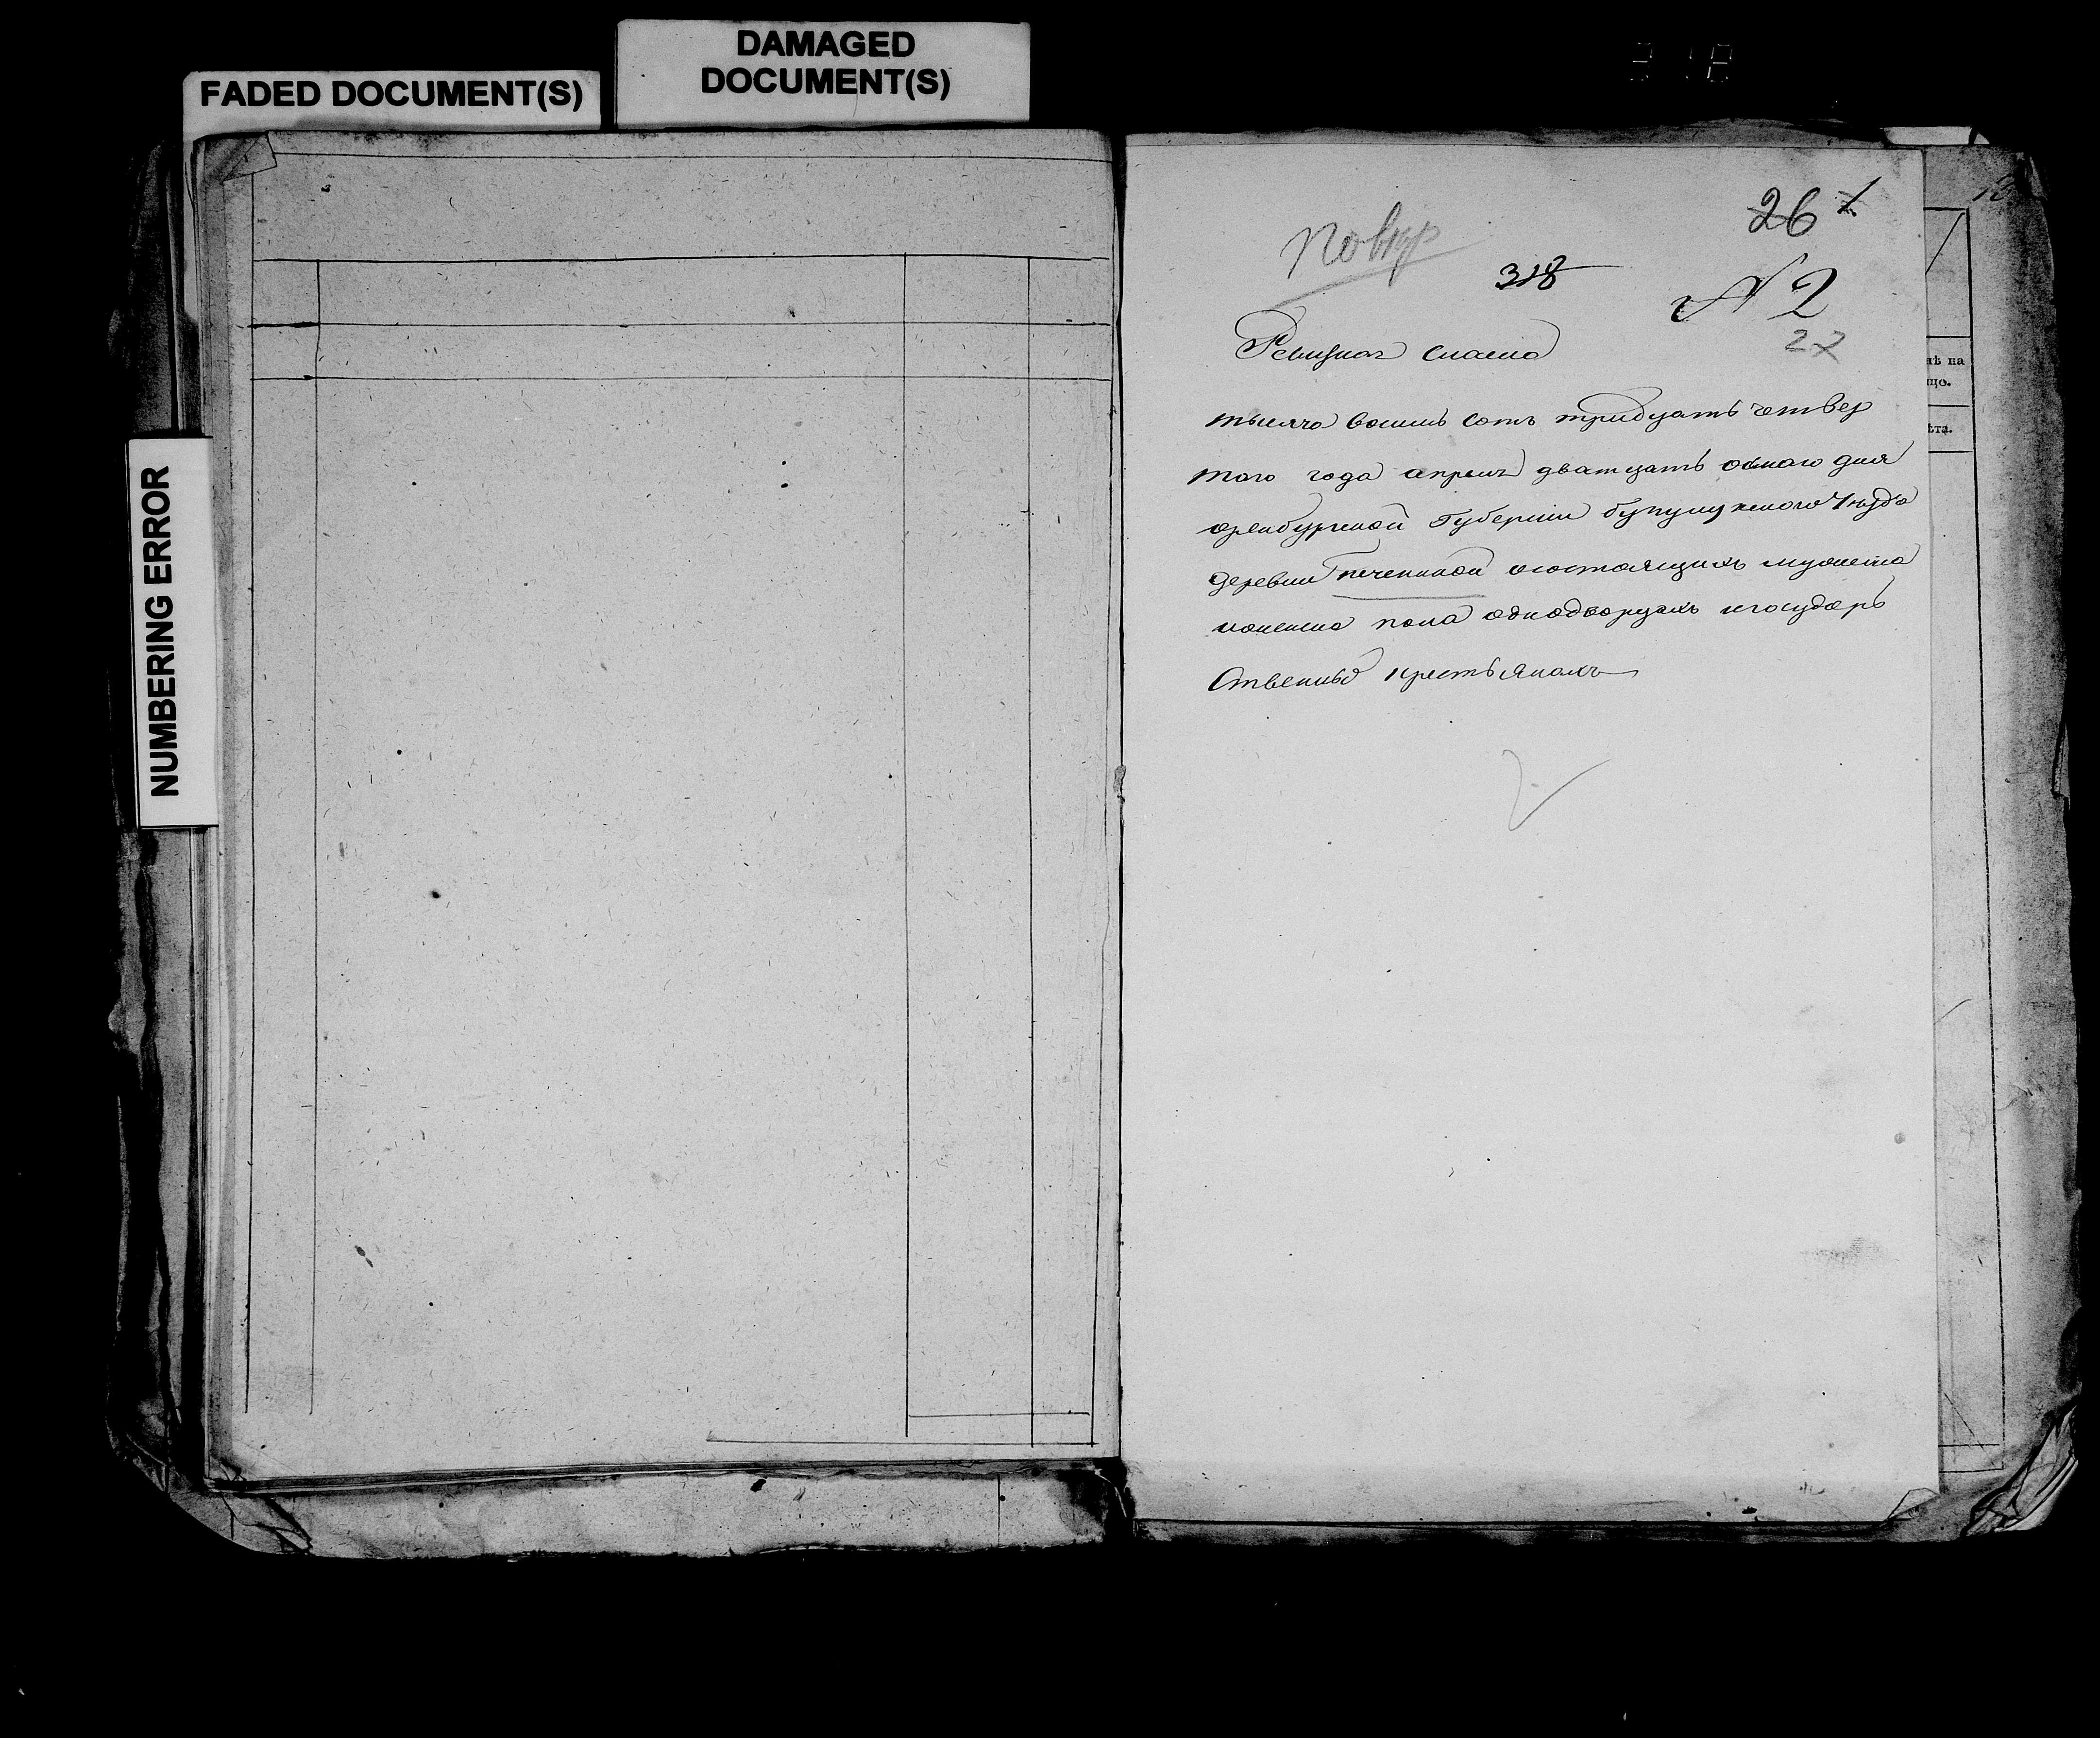 DAMAGED
DOCUMENT(S)
FADED DOCUMENT(S)
NUMBERING ERROR
318
26
318
N 2
27
Ревизкая скаска
тысяча восимь сотъ тридцать четвер
таго года апреля дватцать однаго дня
оренбургской Губернии бугульмского уезда
деревни печениной осостаящихъ мужеска
иженска пола однодворцахъ игосударь
ственныхъ крестьянахъ
нѣ на
цо.
ѣта.